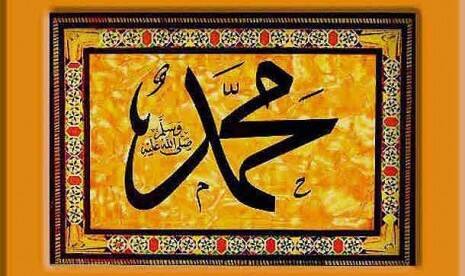 محمّد
صلى الله عليه
وسلم
ح م